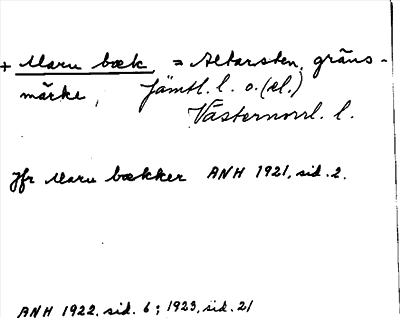 + Maru bæk = Altarsten, gräns-
märke, Jämtl. l. o. (el.)
Västernorrl. l.
Jfr Maru bækker ANH 1921, sid. 2.
ANH 1922, sid. 6; 1923, sid. 21